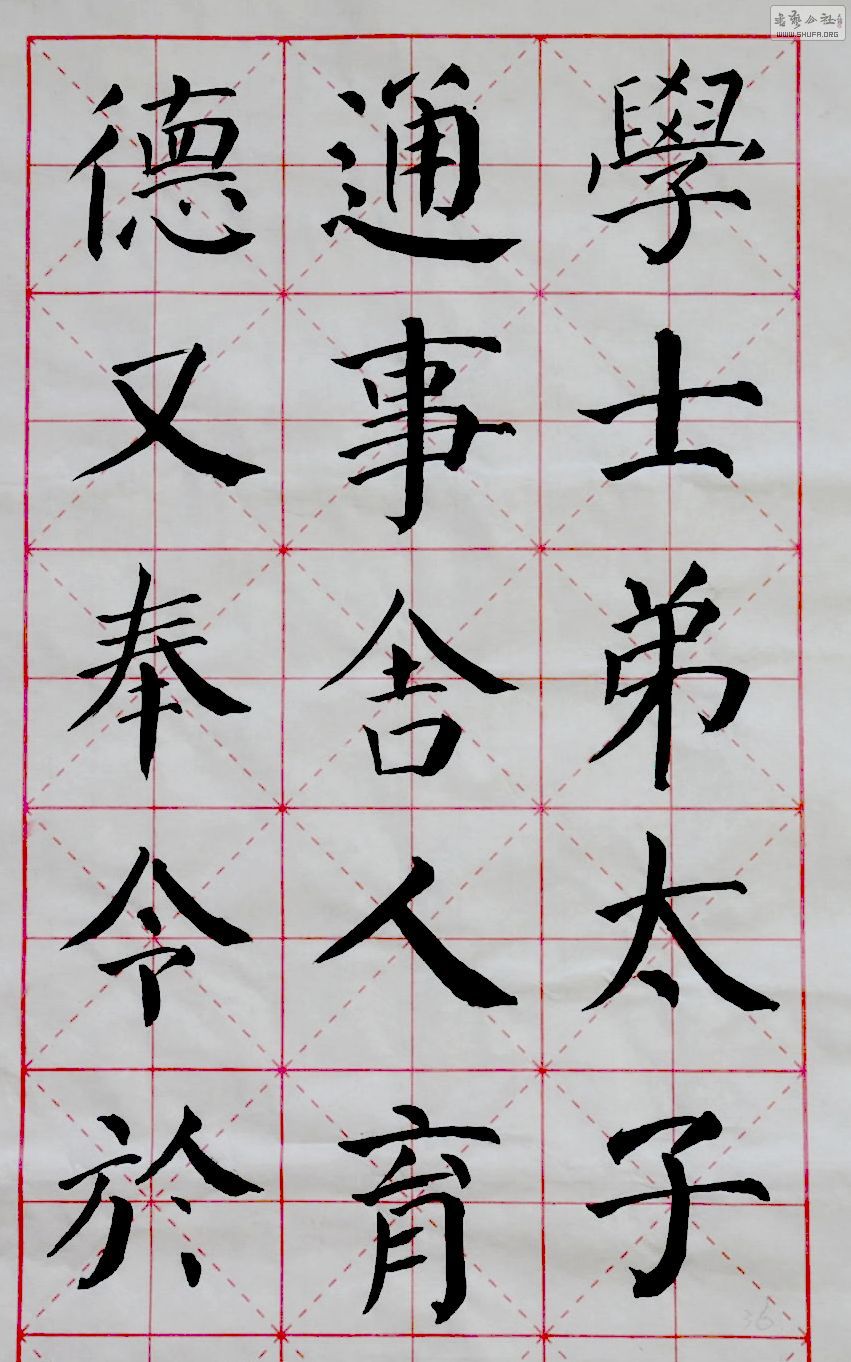 學士弟太子
通事舍人育
德又奉令於
書藝公社
WWW.SHUFA.ORG
36